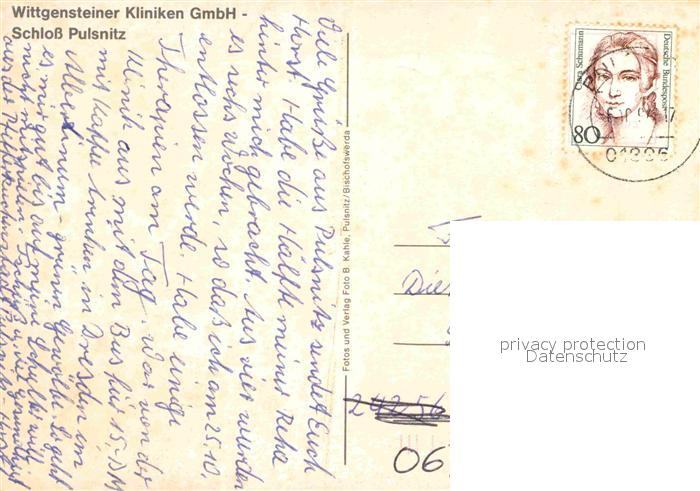 Wittgensteiner Kliniken GmbH -
Schloß Pulsnitz
Viele Grüße aus Pulsnitz sendet Euch
Horst. Habe die Hälfte meiner Reha
hinter mich gebracht. Aus vier wurden
es sechs Wochen, so daß ich am 25.10.
entlassen werde. Habe einige
Therapien am Tag. War von der
Kl. mit aus mit dem Bus für 15,-DM
mit Kaffee trinken in Dresden im
Albertinum - grünen Gewölbe. So geht
es mir gut bis auf meine
Fotos und Verlag Foto B. Kahle, Pulsnitz/Bischofswerda
Clara Schumann
Deutsche Bundespost
80
01896
Die
24256
06
privacy protection
Datenschutz